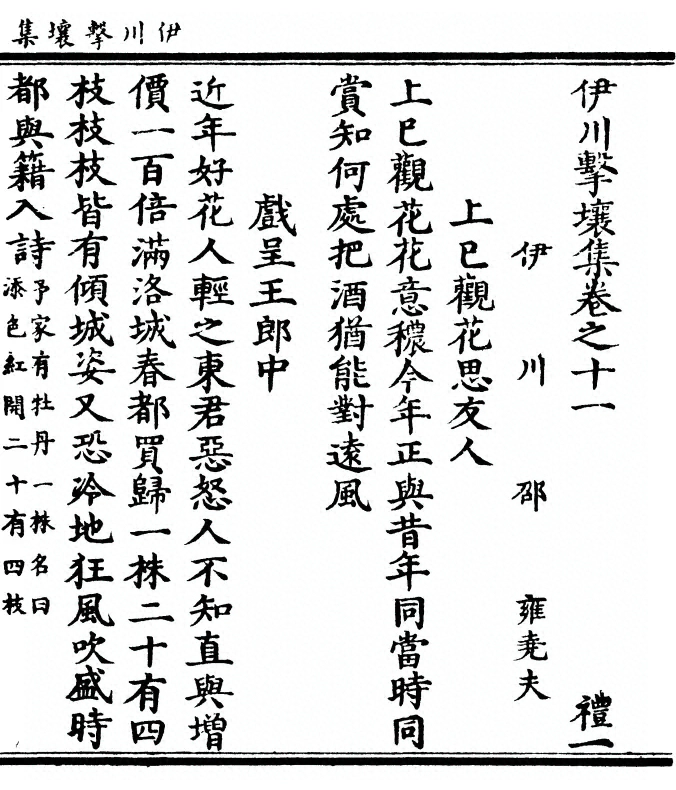 伊川擊壤集
伊川擊壤集卷之十一 禮一
伊川 邵 雍堯夫
上巳觀花思友人
上巳觀花花意穠今年正與昔年同當時同
賞知何處把酒猶能對遠風
戲呈王郎中
近年好花人輕之東君惡怒人不知直與增
價一百倍滿洛城春都買歸一株二十有四
枝枝枝皆有傾城姿又恐冷地狂風吹盛時
都與籍入詩予家有牡丹一株名曰
添色紅開二十有四枝